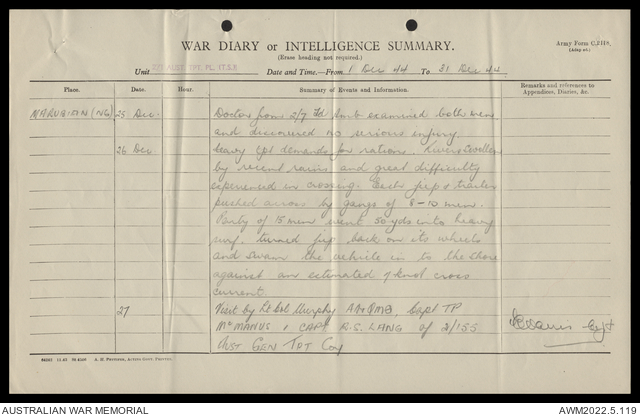 WAR DIARY or INTELLIGENCE SUMMARY.
(Erase heading not required.)
Army Form C.2118,
(Adapted.)
Unit TPT. PL. Date and Time.—From 1 Dec 44 To 31 Dec 44
Place. Date. Hour. Summary of Events and Information. Remarks and references to Appendices, Diaries, &c.
(NG) 25 Dec. Doctor from 2/7 Fd Amb examined both men
and discovered no serious injury.
26 Dec Heavy tpt demands for rations. Rivers swollen
by recent rains and great difficulty
experienced in crossing. Each jeep & trailer
pushed across by gangs of 8-10 men.
Party of 15 men went 50 yds into heavy
surf, turned jeep back on its wheels
and swam the vehicle in to the shore
against an estimated knot cross
current.
27 Visit by Lt Col Murphy AA&QMG, Capt TP
McMANUS & CAPT R.G. LANG of 2/155
Aust GEN TPT Coy
Capt
A. H. Pettifer, Acting Govt. Printer.
AUSTRALIAN WAR MEMORIAL
AWM2022.5.119